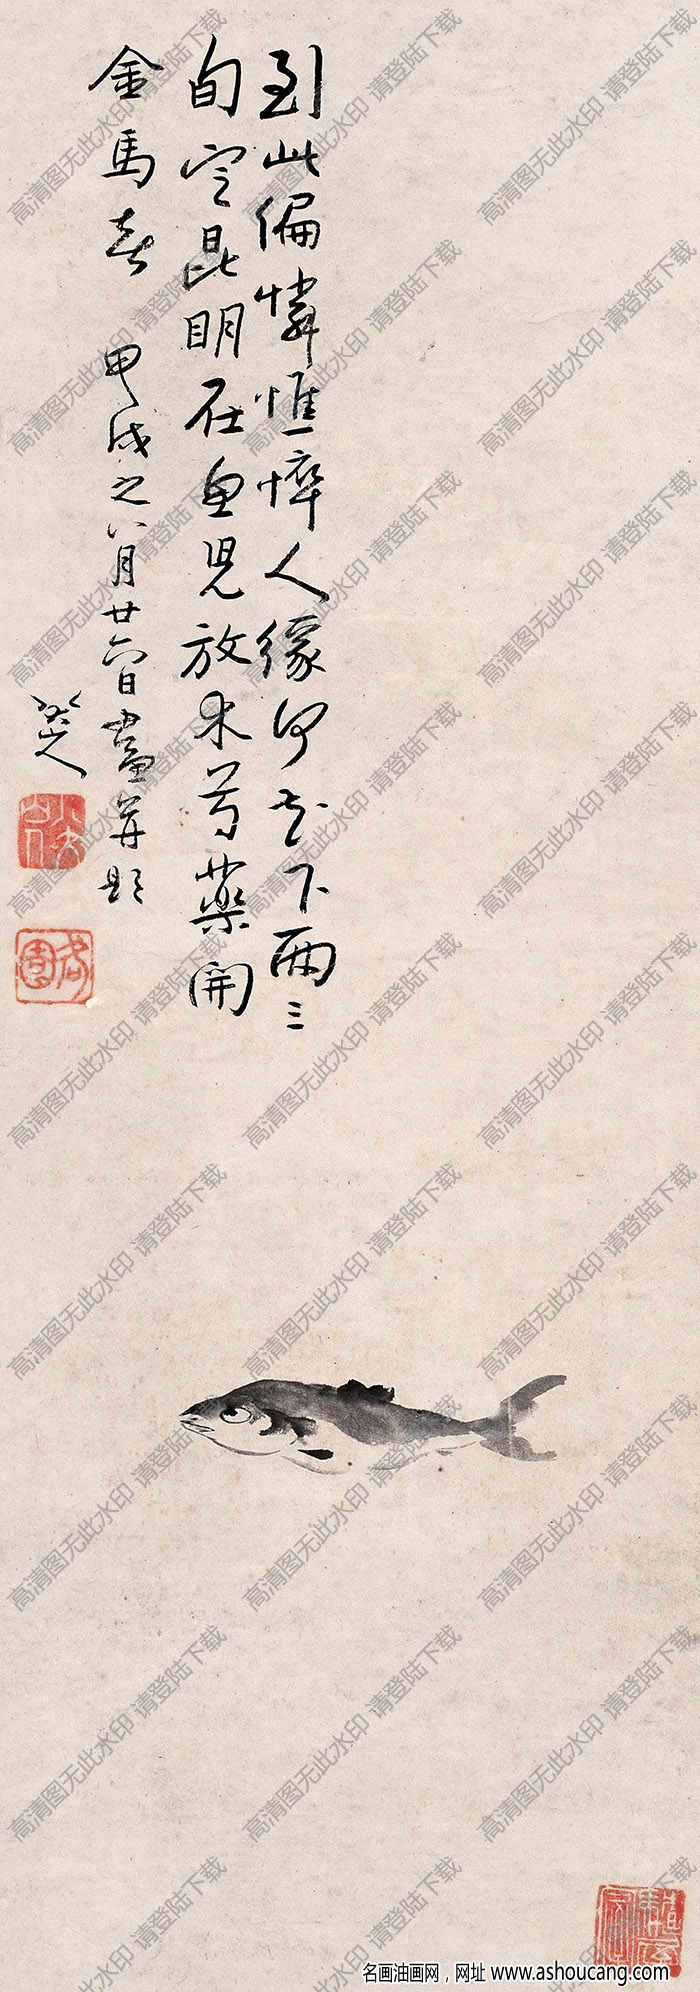 到此偏憐憔悴人緣何花下兩三
旬定昆明在魚兒放木芍藥開
金馬春 甲戌之八月廿六日畫并題
八大山人
高清图无此水印 请登陆下载
名画油画网，网址 www.ashoucang.com